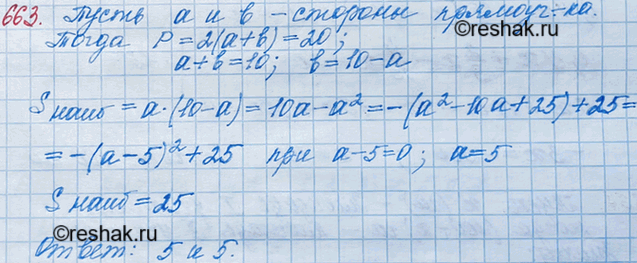 663. Пусть a и b - стороны прямоуг-ка.
Тогда P = 2(a+b) = 20;
a+b=10; b=10-a
S наиб = a·(10-a) = 10a-a² = -(a²-10a+25)+25=
= -(a-5)²+25 при a-5=0; a=5
S наиб = 25
©reshak.ru
Ответ: 5 и 5.
©reshak.ru